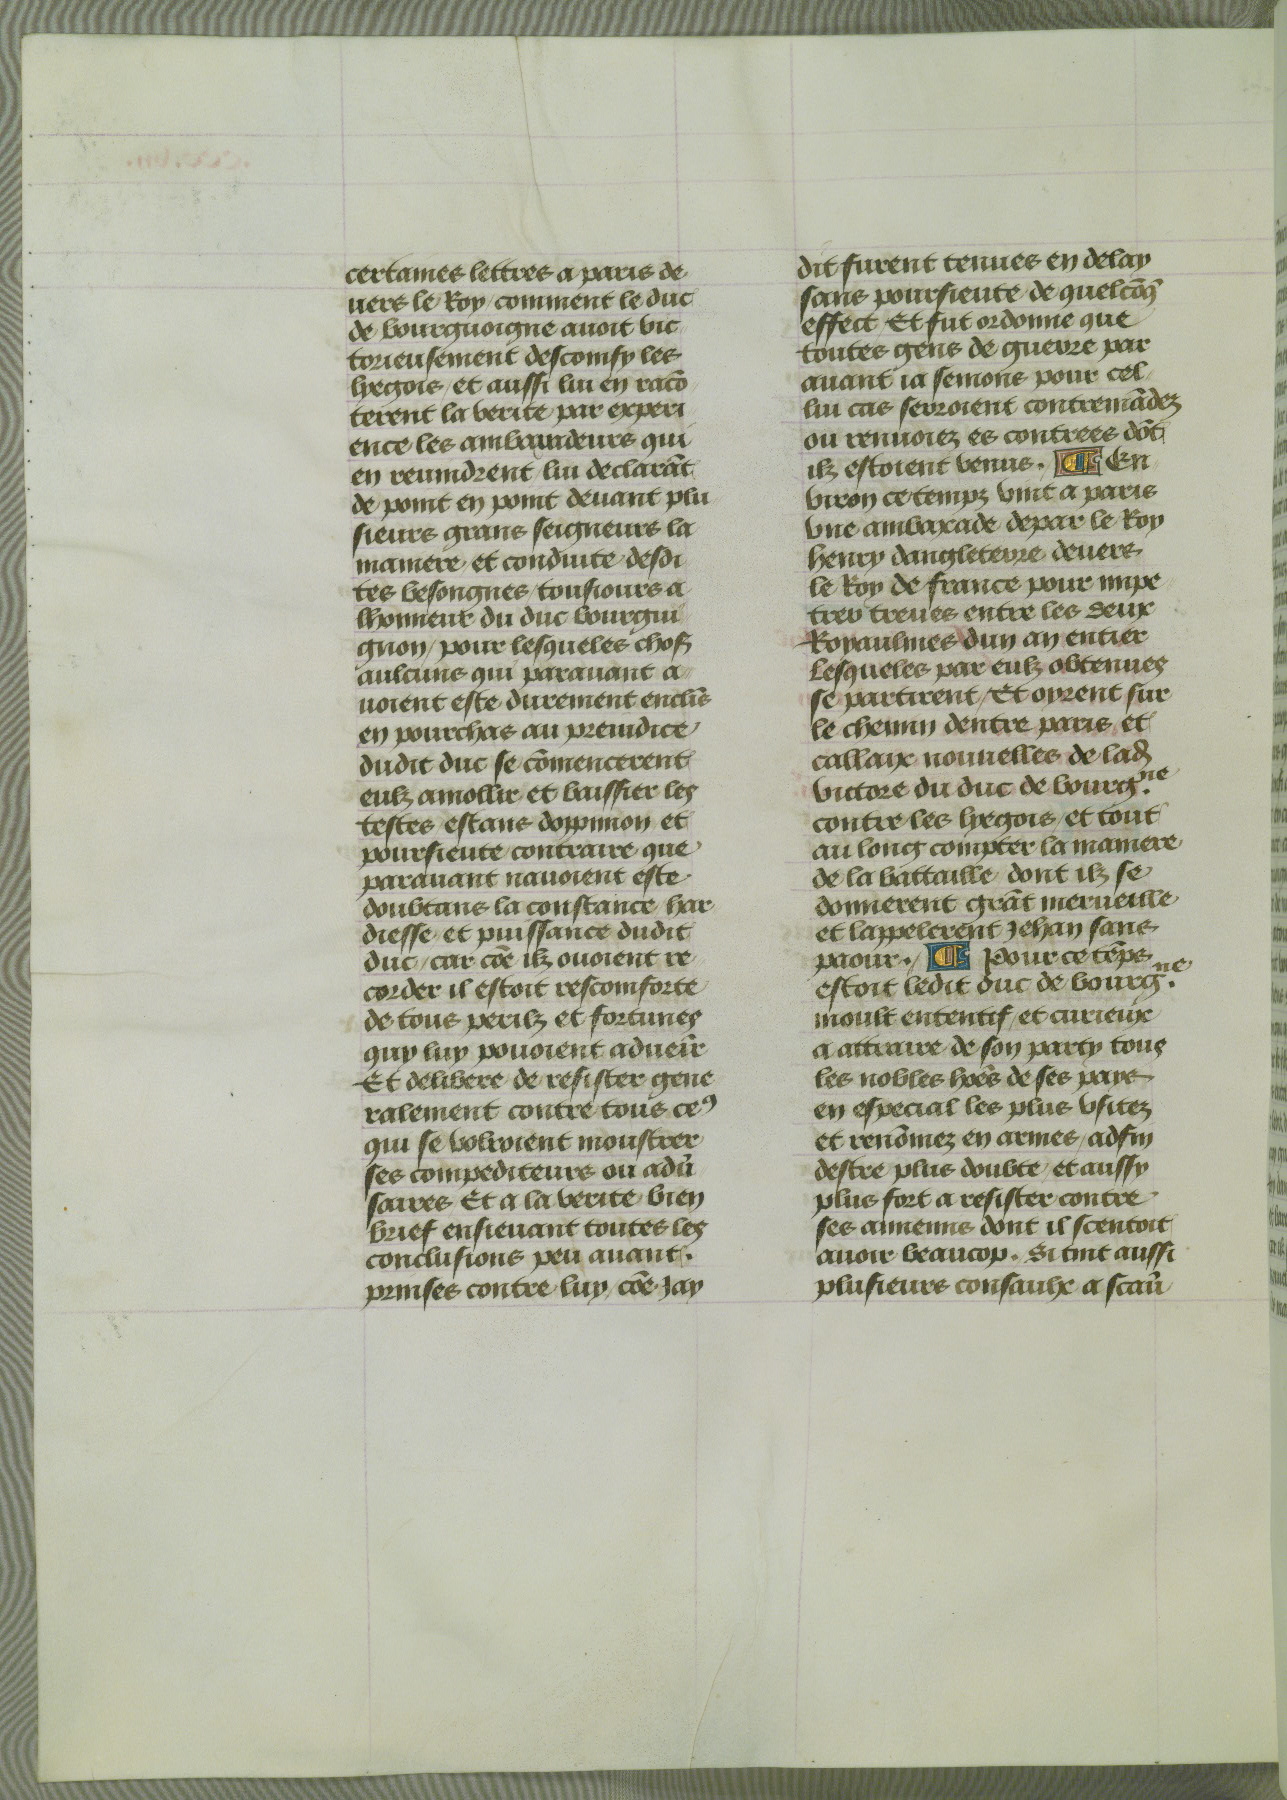 certaines lettres a paris de
uers le Roy / comment le duc
de bourguoigne auoit vic
torieusement descomfy les
lyegois / et aussi lui en racō
terent la verite par experi
ence les ambaxadeurs qui
en reuindrent / lui declarāt
de point en point deuant plu
sieurs grans seigneurs la
maniere / et conduite desdi
tes besongnes / tousiours a
lhonneur du duc bourgui
gnon / pour lesqueles chosȝ
aulcuns qui parauant a
uoient este durement enclīs
en pourchas au preiudice
dudit duc se cōmencerent
eulz amollir et baissier les
testes / estans doppinion et
poursieute contraire que
parauant nauoient este
doubtans la constance har
diesse / et puissance dudit
duc / car cōe ilz ouoient re
corder il estoit rescomforte
de tous perilz et fortunes
quy luy pouoient adueīr
Et delibere de resister gene
ralement contre tous ceꝰ
qui se volroient moustrer
ses compediteurs ou adū
saires Et a la verite bien
brief ensieuant toutes les
conclusions peu auant .
prinses contre luy / cōe Jay
dit furent tenues en delay
sans poursieute de quelcōq̄
effect Et fut ordonne que
toutes gens de guerre par
auant ia semons pour cel
lui cas seroient contremādez
ou renuoiez es contrees dōt
ilz estoient venus . ¶ En
viron ce temps vint a paris
vne ambaxade depar le Roy
henry dangleterre deuers
le Roy de france pour impe
trer treues entre les deux
Royaulmes dun an entier
Lesqueles par eulz obtenues
se partirent / Et oyrent sur
le chemin dentre paris et
callaix nouuelles de lad̄
victore du duc de bourg.ne
contre les lyegois / et tout
au long compter la maniere
de la battaille / dont ilz se
donnerent grāt merueille
et lappelerent Jehan sans
paour . / ¶ Pour ce tēps
estoit ledit duc de bourg.ne
moult ententif / et curieux
a attraire de son party tous
les nobles hōēs de ses pays
en especial les plus vsitez
et renōmez en armes / adfin
destre plus doubte / et aussy
plus fort a resister contre
ses annemis dont il scentoit
auoir beaucop . Si tint aussi
plusieurs consaulx a scaū